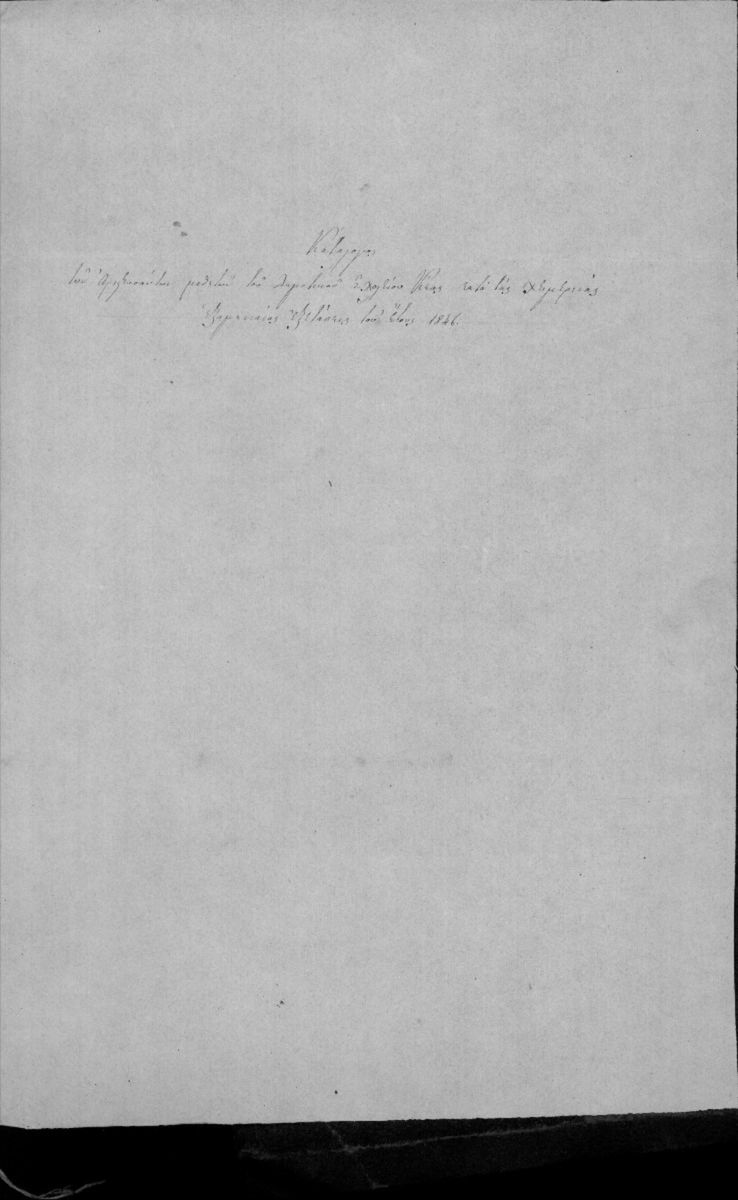 Κατάλογος
τῶν ἀριστευσάντων μαθητῶν τοῦ Δημοτικοῦ Σχολείου Κέας κατὰ τὰς χειμερινάς
ἑξαμηνιαίας ἐξετάσεις τοῦ ἔτους 1846.